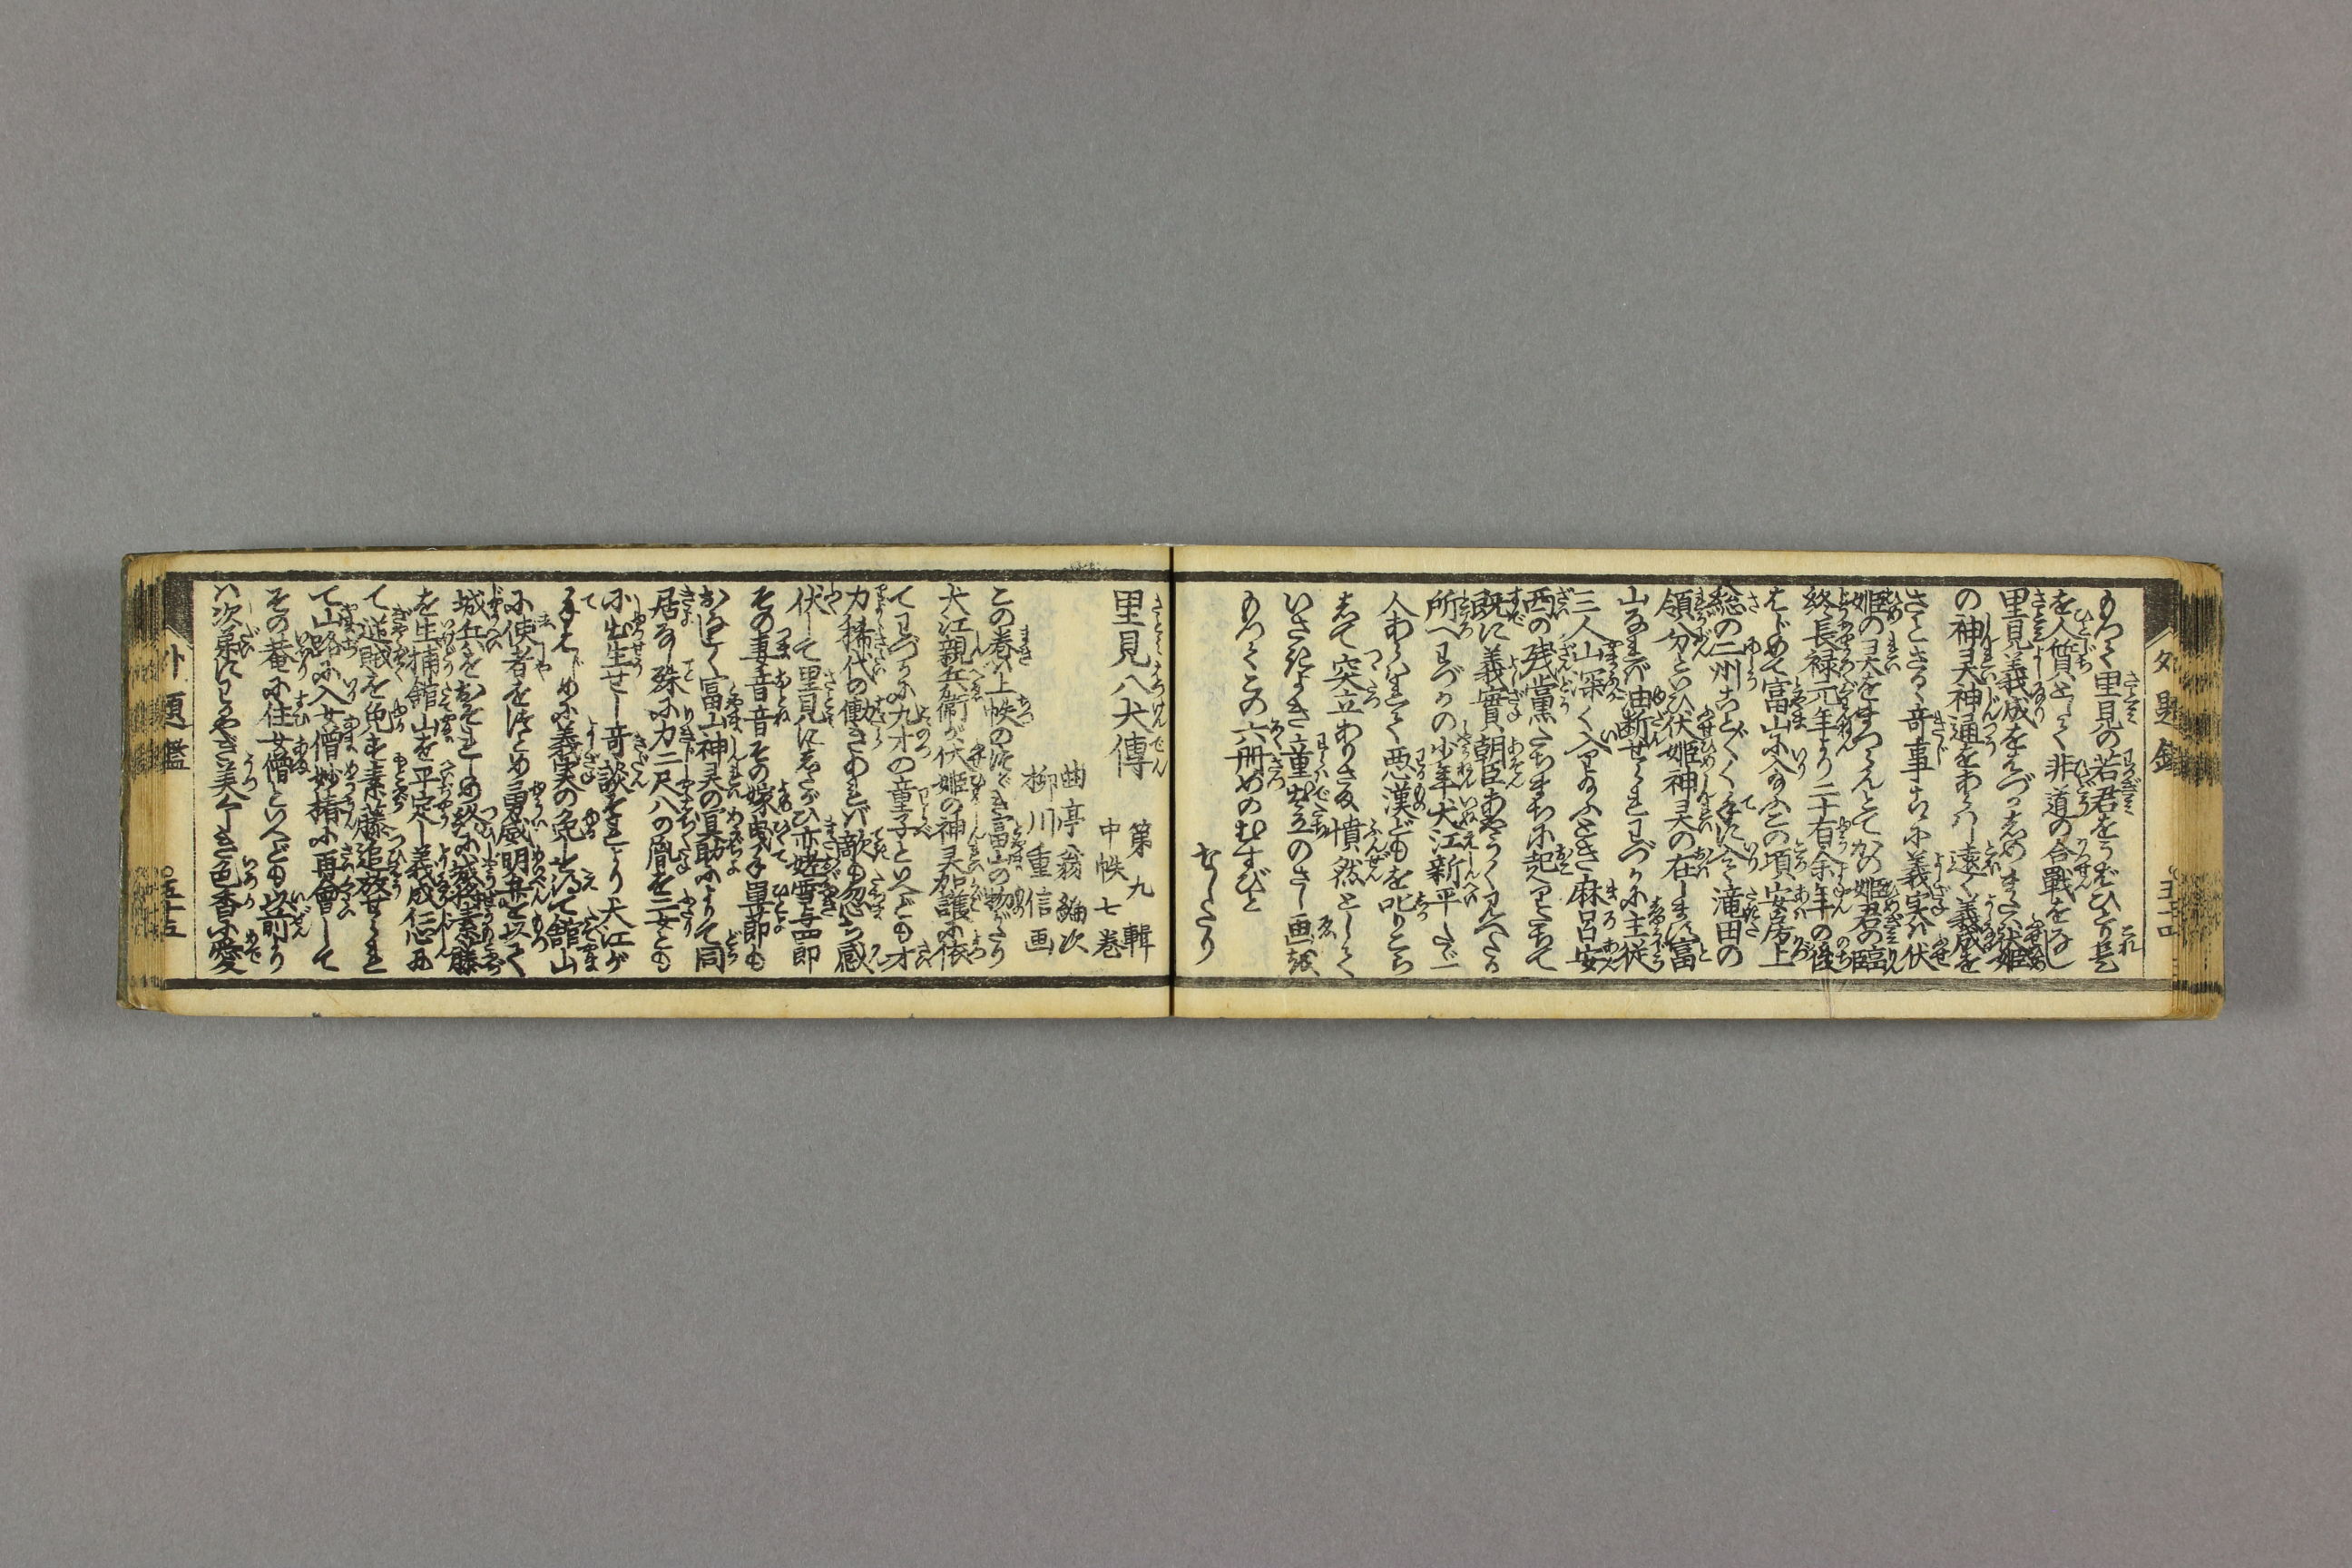 外題鑑 五十四
もつて里見の若君をうばひとり是
を人質として非道の合戰をなし
里見義成をはづかしめまた伏姫
の神灵神通をあらはし遠く義成を
さとさるゝ奇事さらに義実は伏
終り長禄元年より二十有余年の後
はじめて富山に入給ふこの頃安房上
総の二州ことごとく手に入て滝田の
領分といひ伏姫神灵の在します富
山なれば由断せられわづかに主従
三人山深く入り給ふとき麻呂安
西の残黨たちまちに起りたちて
既に義實朝臣あやうく見へたる
所へわづかの少年犬江新平たゞ一
人あらはれて悪漢どもを叱りこら
して突立ありさま憤然として
いさぎよき童出立のさし画
もつてこの六册めのむすびと
なしたり
里見八犬傳 第九輯 中帙七巻
曲亭翁編次
柳川重信画
この巻は上帙のつゞき富山の物がたり
犬江親兵衛が伏姫の神灵加護に依
てわづかに九才の童子といへども才
力稀代の働きあれば敵も忽ち感
伏して里見にしたがひ亦姥雪与四郎
その妻音音その嫁曳手單節も
おなじく富山神灵の冥助によりて同
居なし殊に力二尺八の胤を二女とも
に出生せし竒談それより犬江が
てはじめに義実の免しを得て館山
に使者をつとめ勇威明弁を以て
城兵をおそれしめ終に城将素藤
を生捕館山を平定し義成仁心
て逆賊を免す素藤追放せられ
て山路に入女僧妙椿に再會して
その菴に住女僧といへども以前より
は次第にわかやぎ美くしき色香に愛
外題鑑 五十五